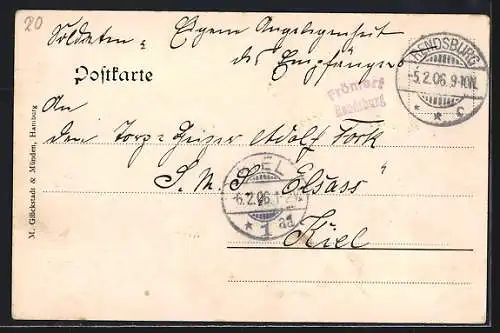 20
Soldaten = Eigene Angelegenheit
des Empfängers
Postkarte
RENDSBURG
-5.2.06.9-10N.
* * c
Rendsburg
An
den Torp = Heizer Adolf Fork
S. M. S. „Elsass"
KIEL
-6.2.06.1-2
* 1 ad
Kiel
M. Glückstadt & Münden, Hamburg